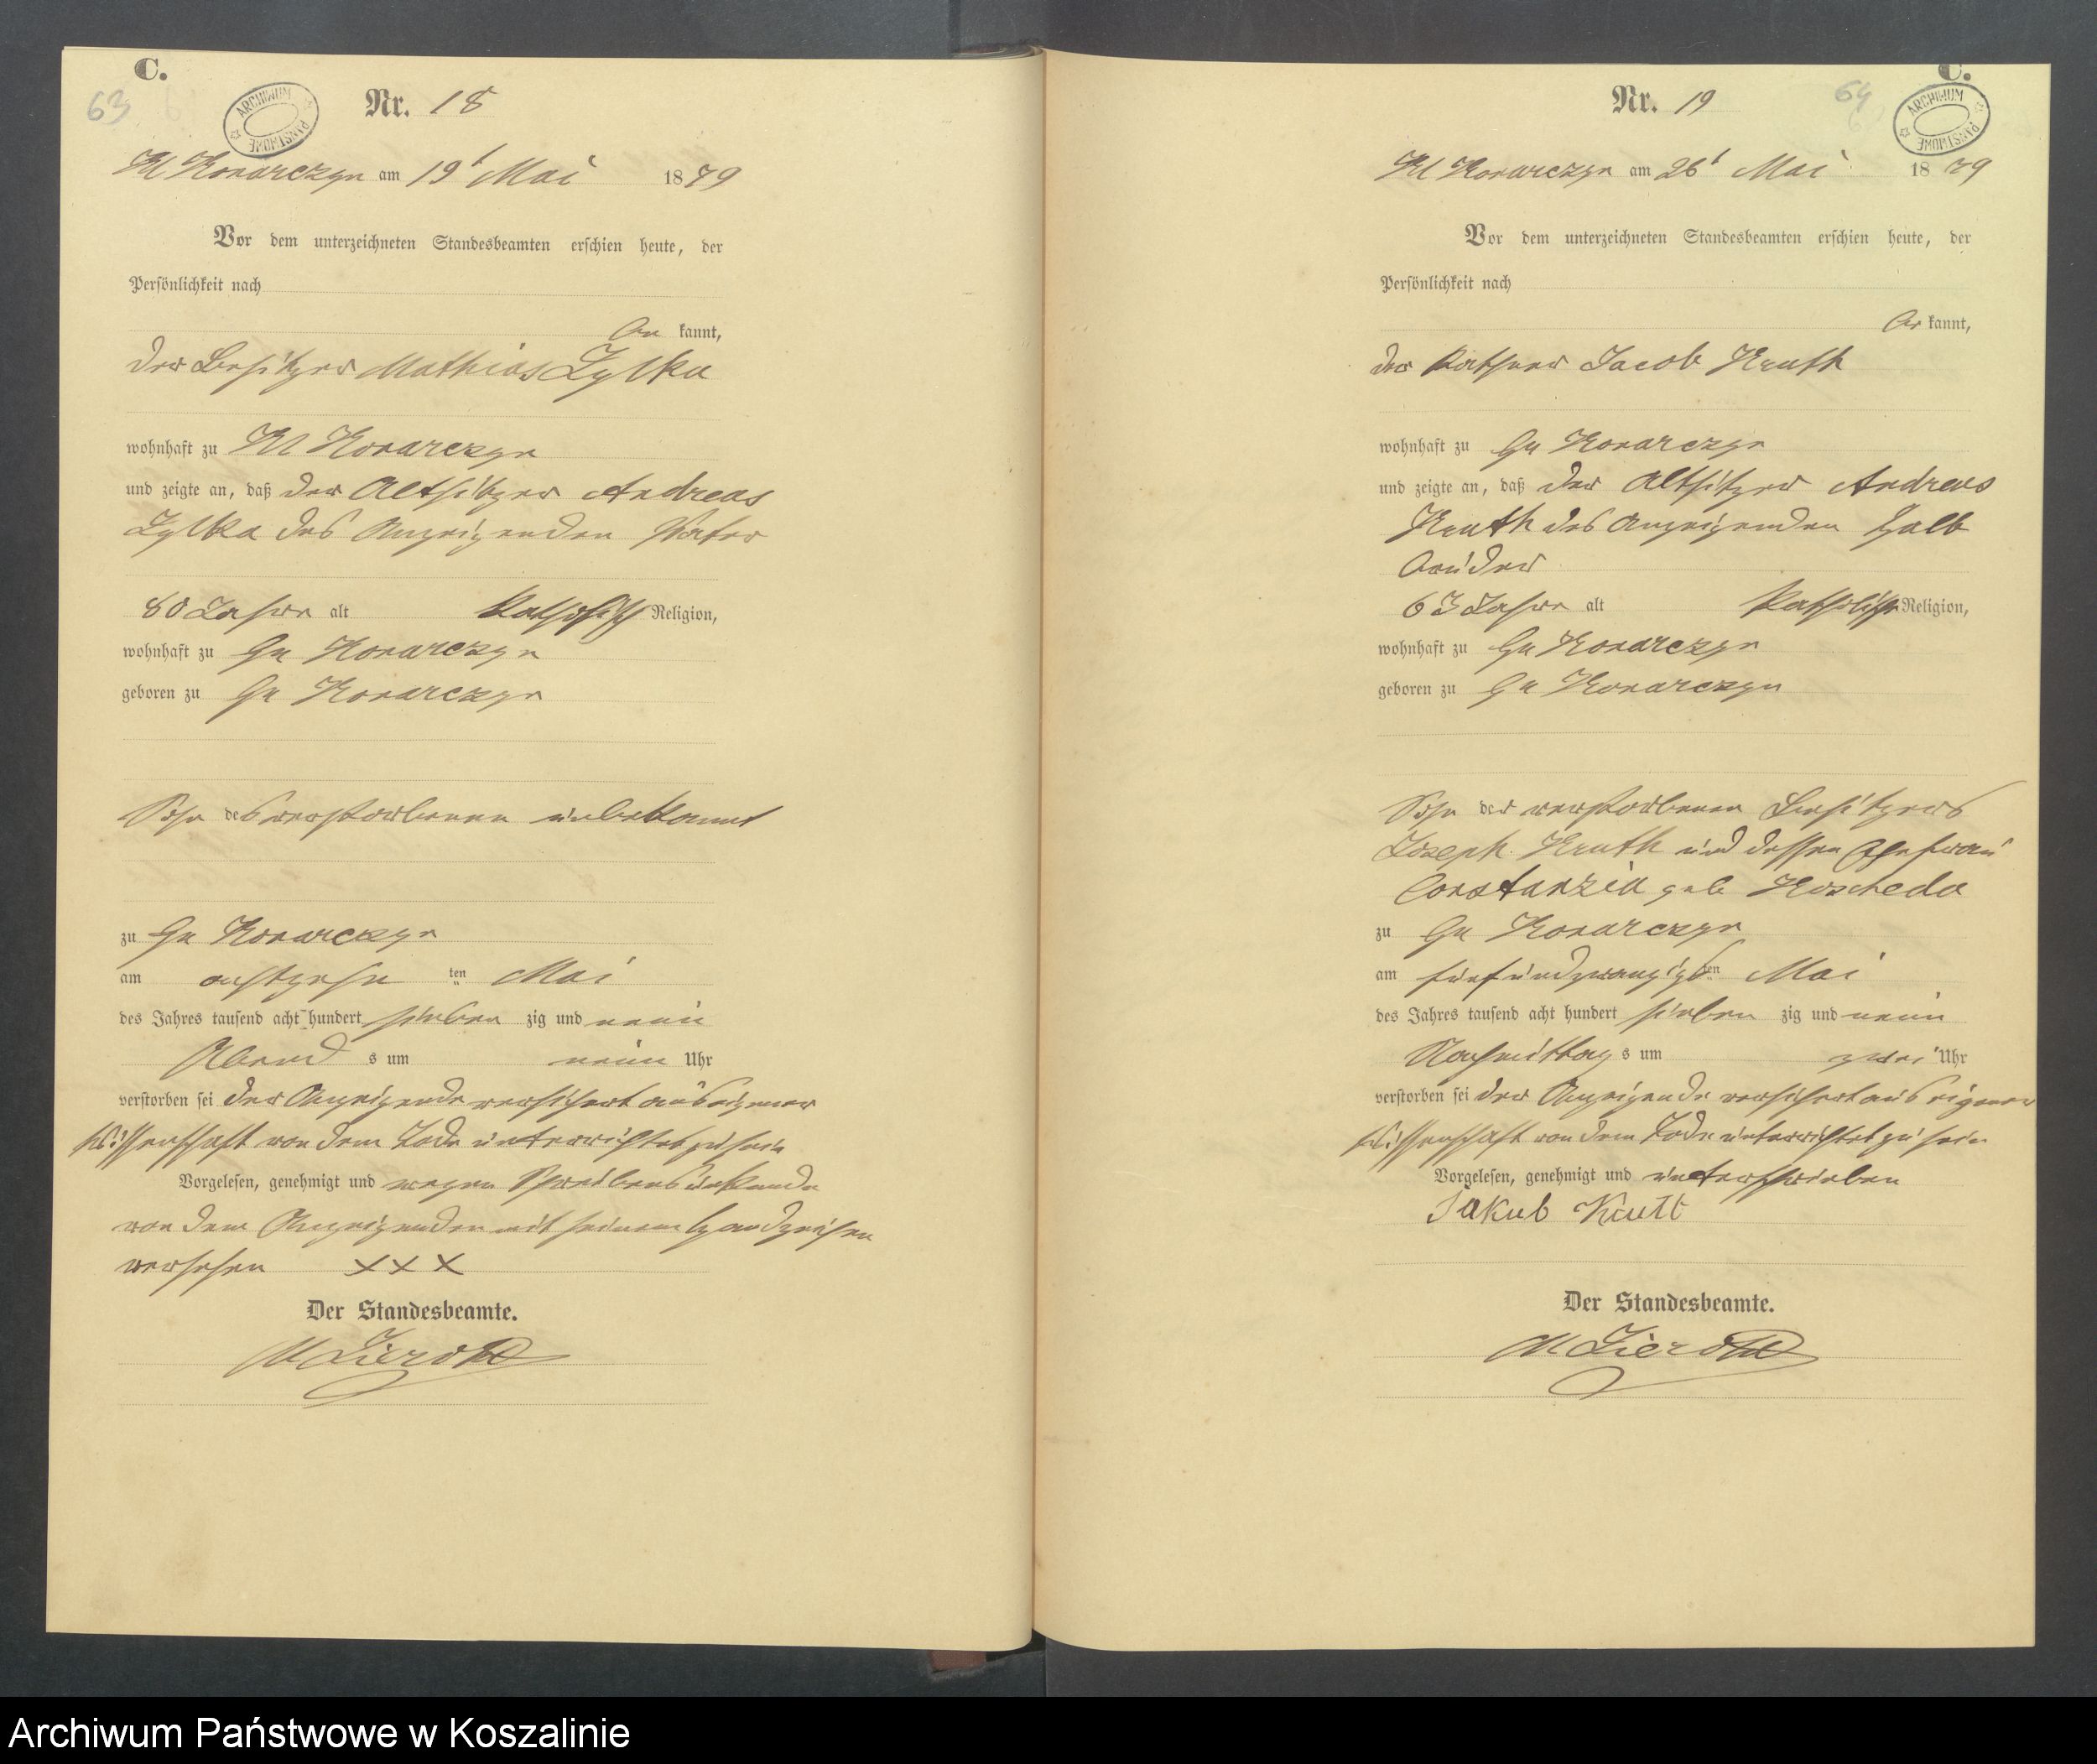 C.
63
ARCHIWUM PAŃSTWOWE
Nr. 18
Kl Konarczyn am 19t Mai 1879
Vor dem unterzeichneten Standesbeamten erschien heute, der
Persönlichkeit nach
be kannt,
der Besitzer Mathias Zylka
wohnhaft zu Kl Konarczyn
und zeigte an, daß der Altsitzer Andreas
Zylka des Anzeigenden Vater
80 Jahre alt Katholisch Religion,
wohnhaft zu Gr Konarczyn
geboren zu Gr Konarczyn
Sohn des verstorbenen unbekannt
zu Gr Konarczyn
am achtzehn ten Mai
des Jahres tausend acht hundert sieben zig und neun
Abend s um neun Uhr
verstorben sei der Anzeigende versichert aus eigener
Wissenschaft von dem Tode unterrichtet zu sein
Vorgelesen, genehmigt und wegen Schreibensunkunde
von dem Anzeigenden mit seinem Handzeichen
versehen XXX
Der Standesbeamte.
C.
64
ARCHIWUM PAŃSTWOWE
Nr. 19
Kl Konarczyn am 26t Mai 1879
Vor dem unterzeichneten Standesbeamten erschien heute, der
Persönlichkeit nach
be kannt,
der Kathner Jacob Knuth
wohnhaft zu Gr Konarczyn
und zeigte an, daß der Altsitzer Andreas
Knuth des Anzeigenden Halb
bruder
63 Jahre alt Katholisch Religion,
wohnhaft zu Gr Konarczyn
geboren zu Gr Konarczyn
Sohn der verstorbenen Besitzers
Joseph Knuth und dessen Ehefrau
Constanzia geb Koscheda
zu Gr Konarczyn
am fünfundzwanzigsten Mai
des Jahres tausend acht hundert sieben zig und neun
Nachmittag s um zwei Uhr
verstorben sei der Anzeigende versichert aus eigener
Wissenschaft von dem Tode unterrichtet zu sein
Vorgelesen, genehmigt und unterschrieben
Jakub Knutt
Der Standesbeamte.
Archiwum Państwowe w Koszalinie